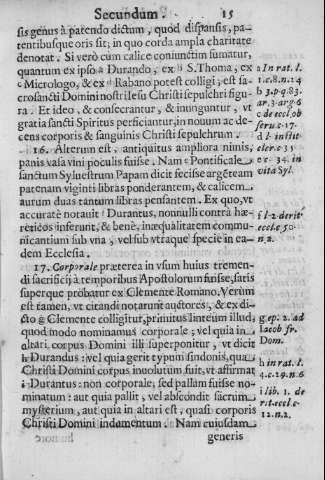 Secundum. 15
sis genus à patendo dictum, quòd dispansis, pa-
tentibusque oris sit; in quo corda ampla charitate
denotat. Si verò cum calice coniunctim sumatur,
quantum ex ipso a Durando, ex S. Thoma, ex
Micrologo, & ex Rabano potest colligi; est sa-
crosancti Domini nostri Iesu Christi sepulchri figu-
ra. Et ideo, & consecrantur, & inunguntur, vt
gratia sancti Spiritus perficiantur, in nouum ac de-
cens corporis & sanguinis Christi sepulchrum.
16. Alterum est, antiquitus ampliora nimis,
panis vasa vini poculis fuisse. Nam Pontificale
sanctum Syluestrum Papam dicit fecisse argẽteam
patenam viginti libras ponderantem, & calicem
aurum duas tantum libras pensantem. Ex quo, vt
accuratè notauit f Durantus, nonnulli contra hæ-
reticos inferunt, & benè, inæqualitatem commu-
nicantium sub vna, vel sub vtraque specie in ea-
dem Ecclesia.
17. Corporale præterea in vsum huius tremen-
di sacrificij à temporibus Apostolorum fuisse, satis
superque probatur ex Clemente Romano. Verùm
est tamen, vt citandi notarunt auctores, & ex di-
cto g Clemente colligitur, primitus linteum illud,
quod modo nominamus corporale; vel quia in
altari, corpus Domini illi superponitur, vt dicit
h Durandus: vel quia gerit typum sindonis, qua
Christi Domini corpus inuolutum fuit, vt affirmat
i Durantus: non corporale, sed pallam fuisse no-
minatum: aut quia pallit, vel abscondit sacrum
mysterium, aut quia in altari est, quasi corporis
Christi Domini indumentum. Nam cuiusdam
generis
a In rat. l.
1. c. 8. n. 24
b 3. p. q. 83.
ar. 3. arg. 6
c de eccl. ob
seru. c. 17.
d l. instit
cler. c. 35
e c. 34. in
vita Syl.
f l. 2. de rit
eccl. c. 50
n. 2.
g ep. 2. ad
Iacob fr.
Dom.
h in rat. l.
4. c. 29. n. 6
i lib. 1. de
rit. eccl. c.
12. n. 2.